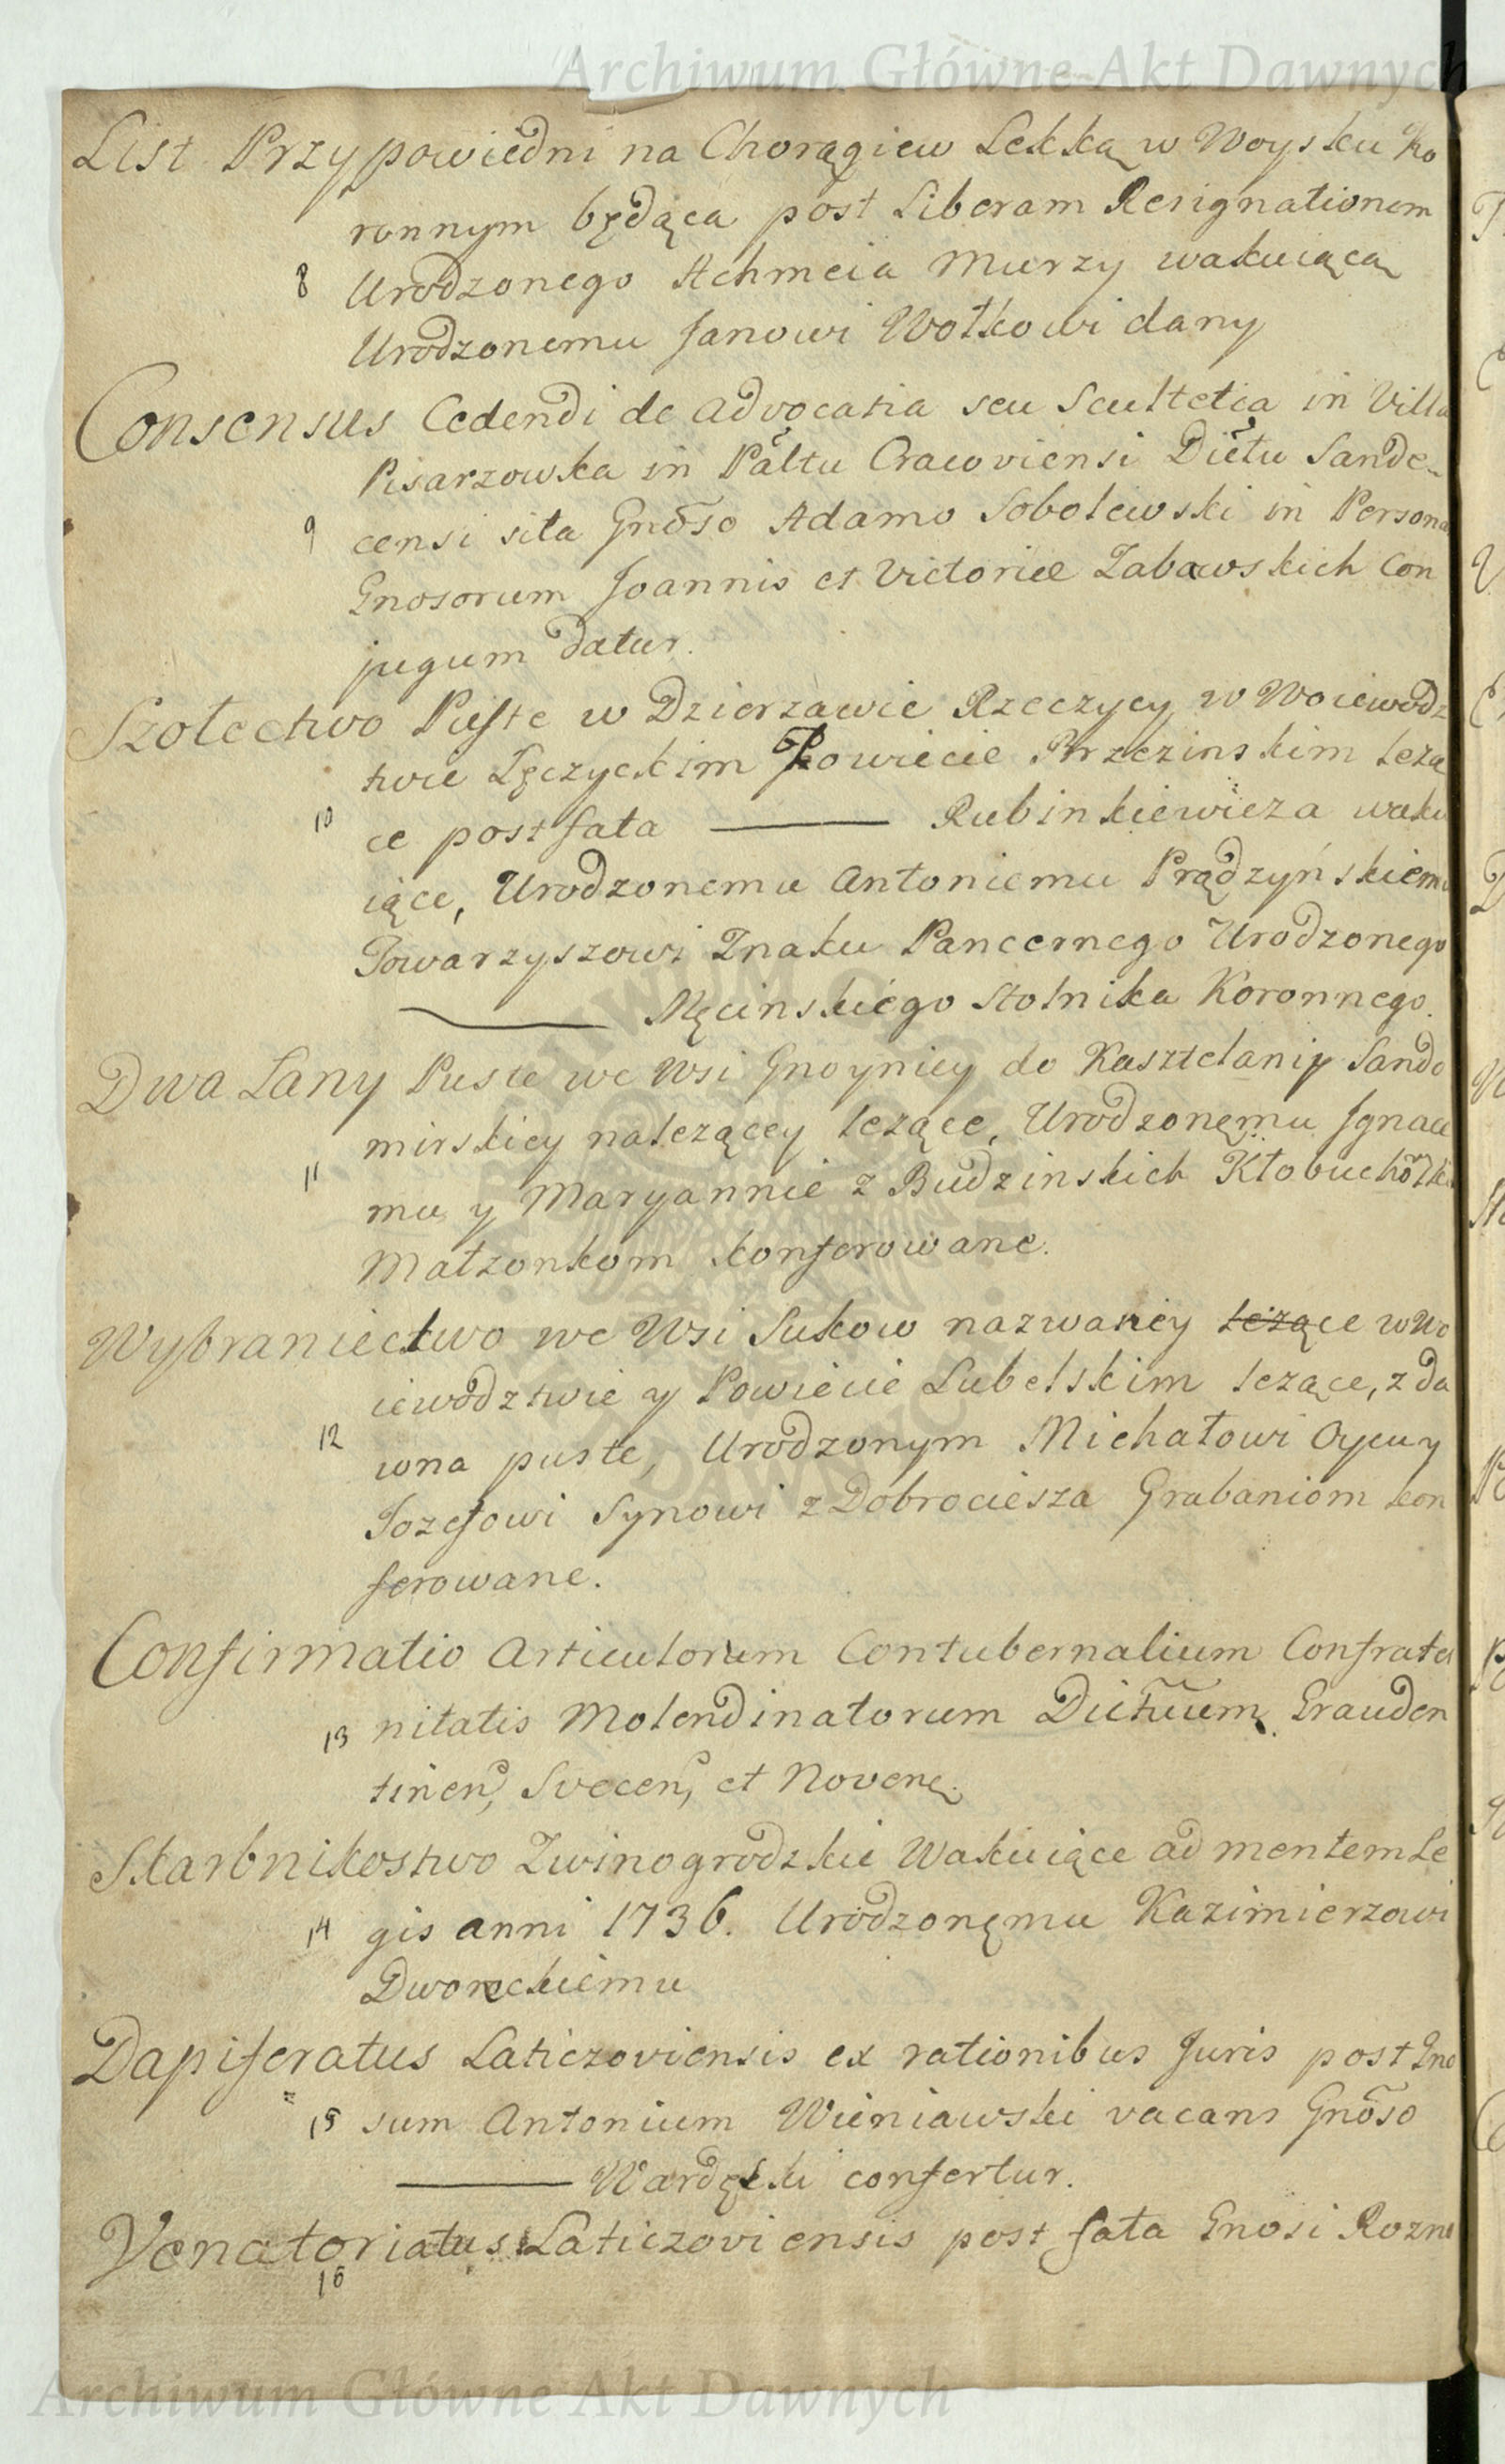 Archiwum Główne Akt Dawnych
List Przypowiedni na Chorągiew Lekką w Woysku Ko
ronnym będąca post Liberam Resignationem
8 Urodzonego Achmeia Murzy wakuiącą
Urodzonemu Janowi Wołkowi dany
Consensus Cedendi de Advocatia seu Scultetia in Villa
Pisarzowska in Pałtu Cracoviensi Dictu Sande-
9 censi sita Gnõso Adamo Sobolewski in Persona
Gnosorum Joannis et Victoriæ Zabawskich Con
jugum datur.
Szołectwo Puste w Dzierzawie Rzeczycy w Woiewodz
twie Lęczyckim Powiecie Brzezinskim lezą
10 ce post fata ——— Rubinkiewicza waku
iące, Urodzonemu Antoniemu Prądzyńskiemu
Towarzyszowi Znaku Pancernego Urodzonego
——— Męcinskiego Stolnika Koronnego.
Dwa Lany Puste we Wsi Gnoynicy do Kasztelanij Sando
mirskiey nalezącey lezące, Urodzonęmu Ignace
11 mu y Maryannie z Budzinskich
Małzonkom konferowane.
Wybraniectwo we Wsi Sukow nazwaney leżące w Wo
iewodztwie y Powiecie Lubelskim lezące, z da
12 wna puste, Urodzonym Michałowi Oycu y
Jozefowi Synowi z Dobrociesza Grabaniom kon
ferowane.
Confirmatio Articulorum Contubernalium Confrater
13 nitatis Molendinatorum Dictuum Grauden
tinen, Svecen, et Novenę.
Skarbnikostwo Zwinogrodzkie Wakuiące ad mentem Le
14 gis anni 1736. Urodzonęmu Kazimierzowi
Dworeckiemu
Dapiferatus Laticzoviensis ex rationibus Juris post Gno
15 sum Antonium Wieniawski vacans Gnõso
——— Wardęski confertur.
Venatoriatus Laticzoviensis post fata Gnosi Rozno
16
Archiwum Główne Akt Dawnych